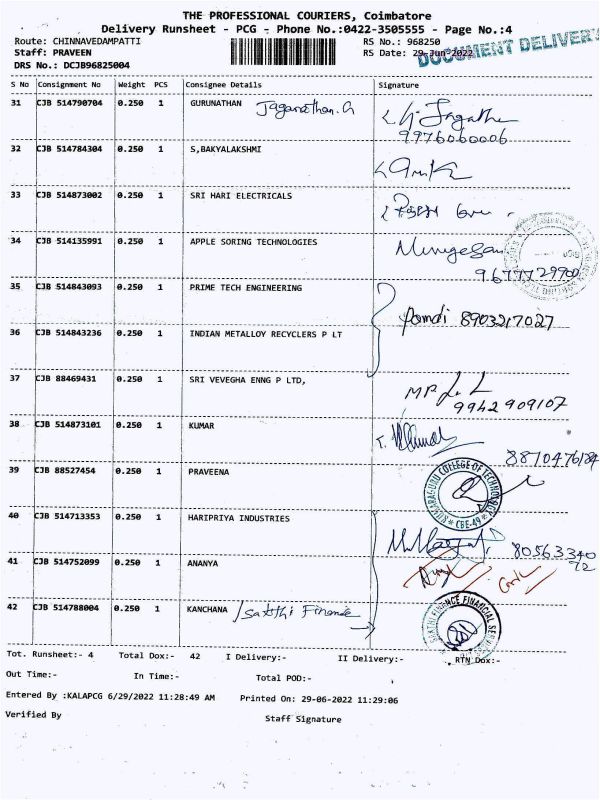 THE PROFESSIONAL COURIERS, Coimbatore
Delivery Runsheet - PCG - Phone No.:0422-3505555 - Page No.:4
Route: CHINNAVEDAMPATTI RS No.: 968250
Staff: PRAVEEN RS Date: 29-Jun-2022 DOCUMENT DELIVERY
DRS No.: DCJB96825004
S No Consignment No Weight PCS Consignee Details Signature
31 CJB 514790704 0.250 1 GURUNATHAN Jaganathan.G
9976060006
32 CJB 514784304 0.250 1 S,BAKYALAKSHMI
33 CJB 514873002 0.250 1 SRI HARI ELECTRICALS
34 CJB 514135991 0.250 1 APPLE SORING TECHNOLOGIES Murugesan
9677729900
35 CJB 514843093 0.250 1 PRIME TECH ENGINEERING
8903217027
36 CJB 514843236 0.250 1 INDIAN METALLOY RECYCLERS P LT
37 CJB 88469431 0.250 1 SRI VEVEGHA ENNG P LTD,
9942909107
38 CJB 514873101 0.250 1 KUMAR
8870476184
39 CJB 88527454 0.250 1 PRAVEENA KUMARAGURU COLLEGE OF TECHNOLOGY CBE-49
40 CJB 514713353 0.250 1 HARIPRIYA INDUSTRIES
8056334072
41 CJB 514752099 0.250 1 ANANYA
42 CJB 514788004 0.250 1 KANCHANA / Sakthi Finance SAKTHI FINANCE FINANCIAL SERVICES
Tot. Runsheet:- 4 Total Dox:- 42 I Delivery:- II Delivery:- RTN Dox:-
Out Time:- In Time:- Total POD:-
Entered By :KALAPCG 6/29/2022 11:28:49 AM Printed On: 29-06-2022 11:29:06
Verified By Staff Signature